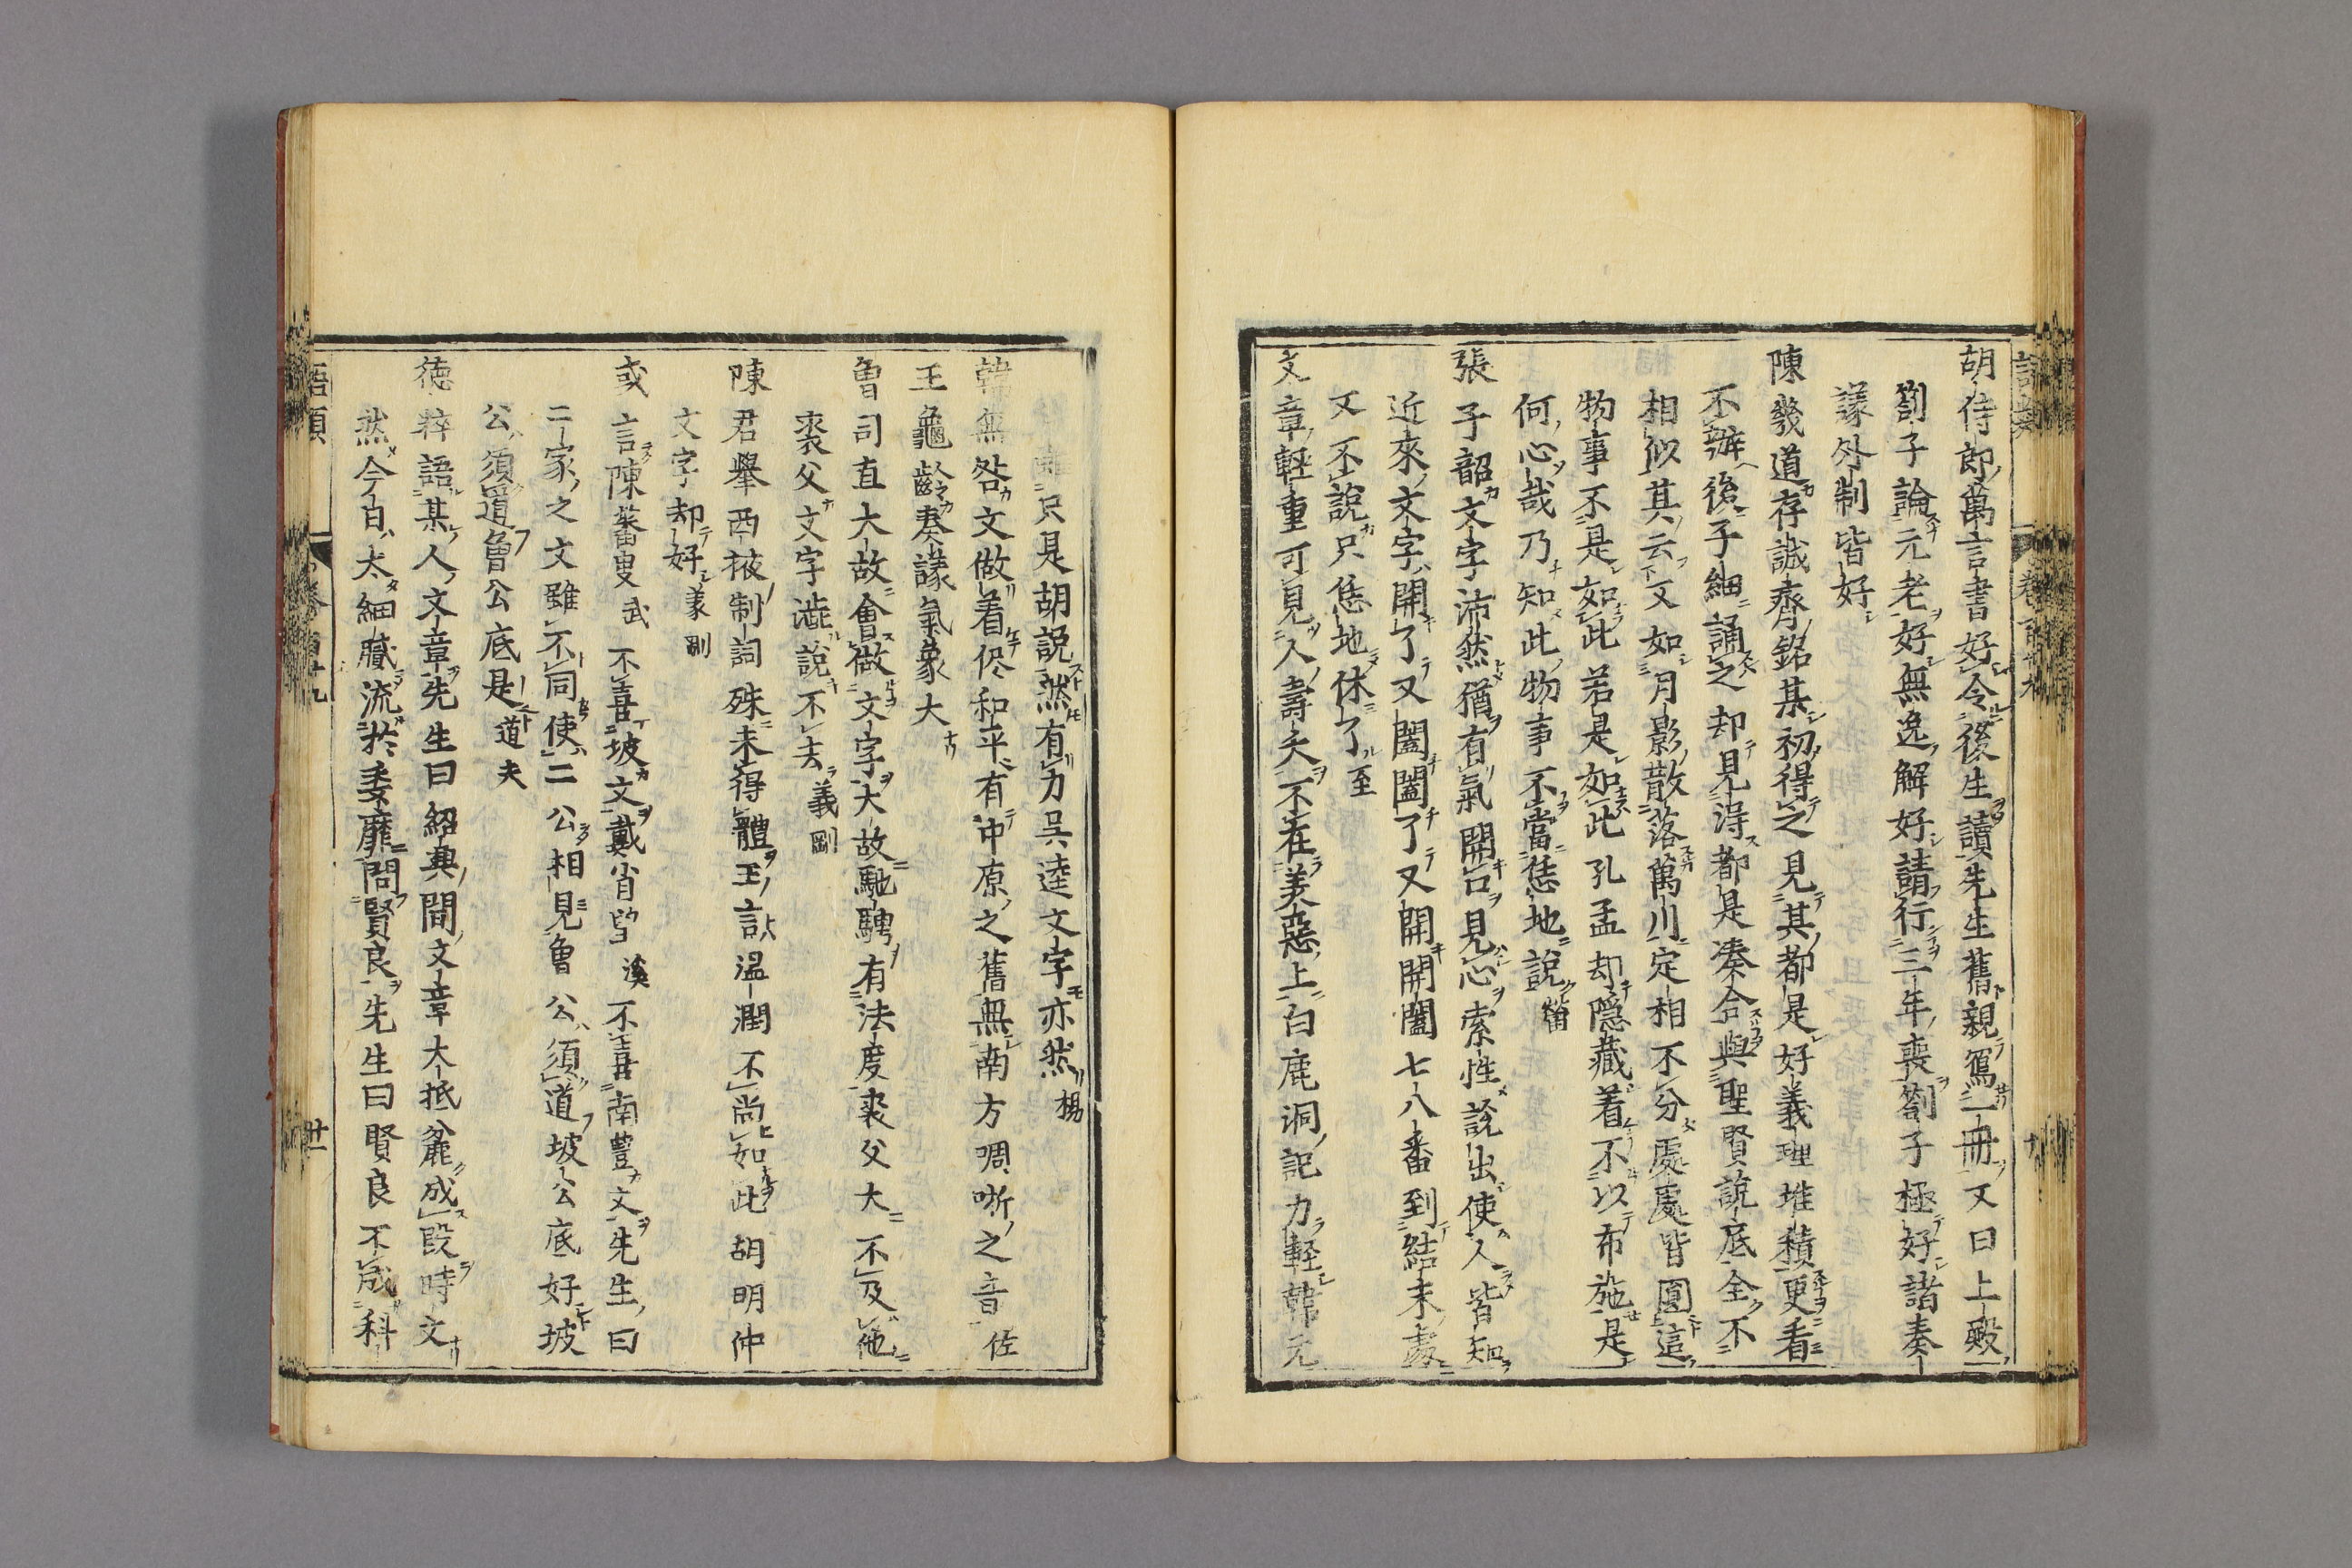 胡侍郎萬言書好令後生讀先生舊親寫一冊又曰上殿
劄子論元老好無逸解好請行三年喪劄子極好諸奏
議外制皆好
陳幾道存誠齋銘某初得之見其都是好義理堆積更看
不辦後子細誦之却見淂都是湊合與聖賢說底全不
相似其云又如月影散落萬川定相不分處處皆圓這
物事不是如此若是如此孔孟却隱藏着不以布施是
何心哉乃知此物事不當恁地說
張子韶文字沛然猶有氣開口見心索性說出使人皆知
近來文字開了又闔闔了又開開闔七八番到結末處
又不說只恁地休了至
文章輕重可見人壽夭不在美惡上白鹿洞記力輕韓元
只是胡說然有力吳逵文字亦然楊
韓無咎文做着侭和平有中原之舊無南方啁哳之音佐
王龜齡奏議氣象大
曾司直大故會做文字大故馳騁有法度裘父大不及他
裘父文字澁說不去義剛
陳君舉西掖制詞殊未得體王言溫潤不尚如此胡明仲
文字却好義剛
或言陳蕃叟武不喜坡文戴肖望溪不喜南豐文先生曰
二家之文雖不同使二公相見曾公須道坡公底好坡
公須道曾公底是道夫
德粹語某人文章先生曰紹興間文章大抵麄成段時文
然今日太細膩流於委靡問賢良先生曰賢良不成科
語類
卷百卅九
廿一